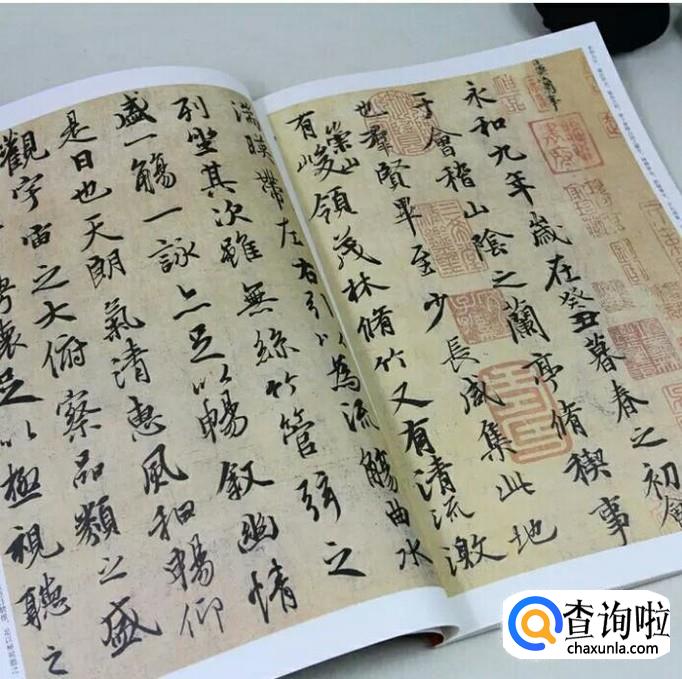 永和九年歲在癸丑暮春之初會
于會稽山陰之蘭亭脩稧事
也羣賢畢至少長咸集此地
有崇山峻領茂林脩竹又有清流激
湍暎帶左右引以為流觴曲水
列坐其次雖無絲竹管弦之
盛一觴一詠亦足以暢叙幽情
是日也天朗氣清惠風和暢仰
觀宇宙之大俯察品類之盛
懷足以極視聽之
查询啦
chaxunla.com